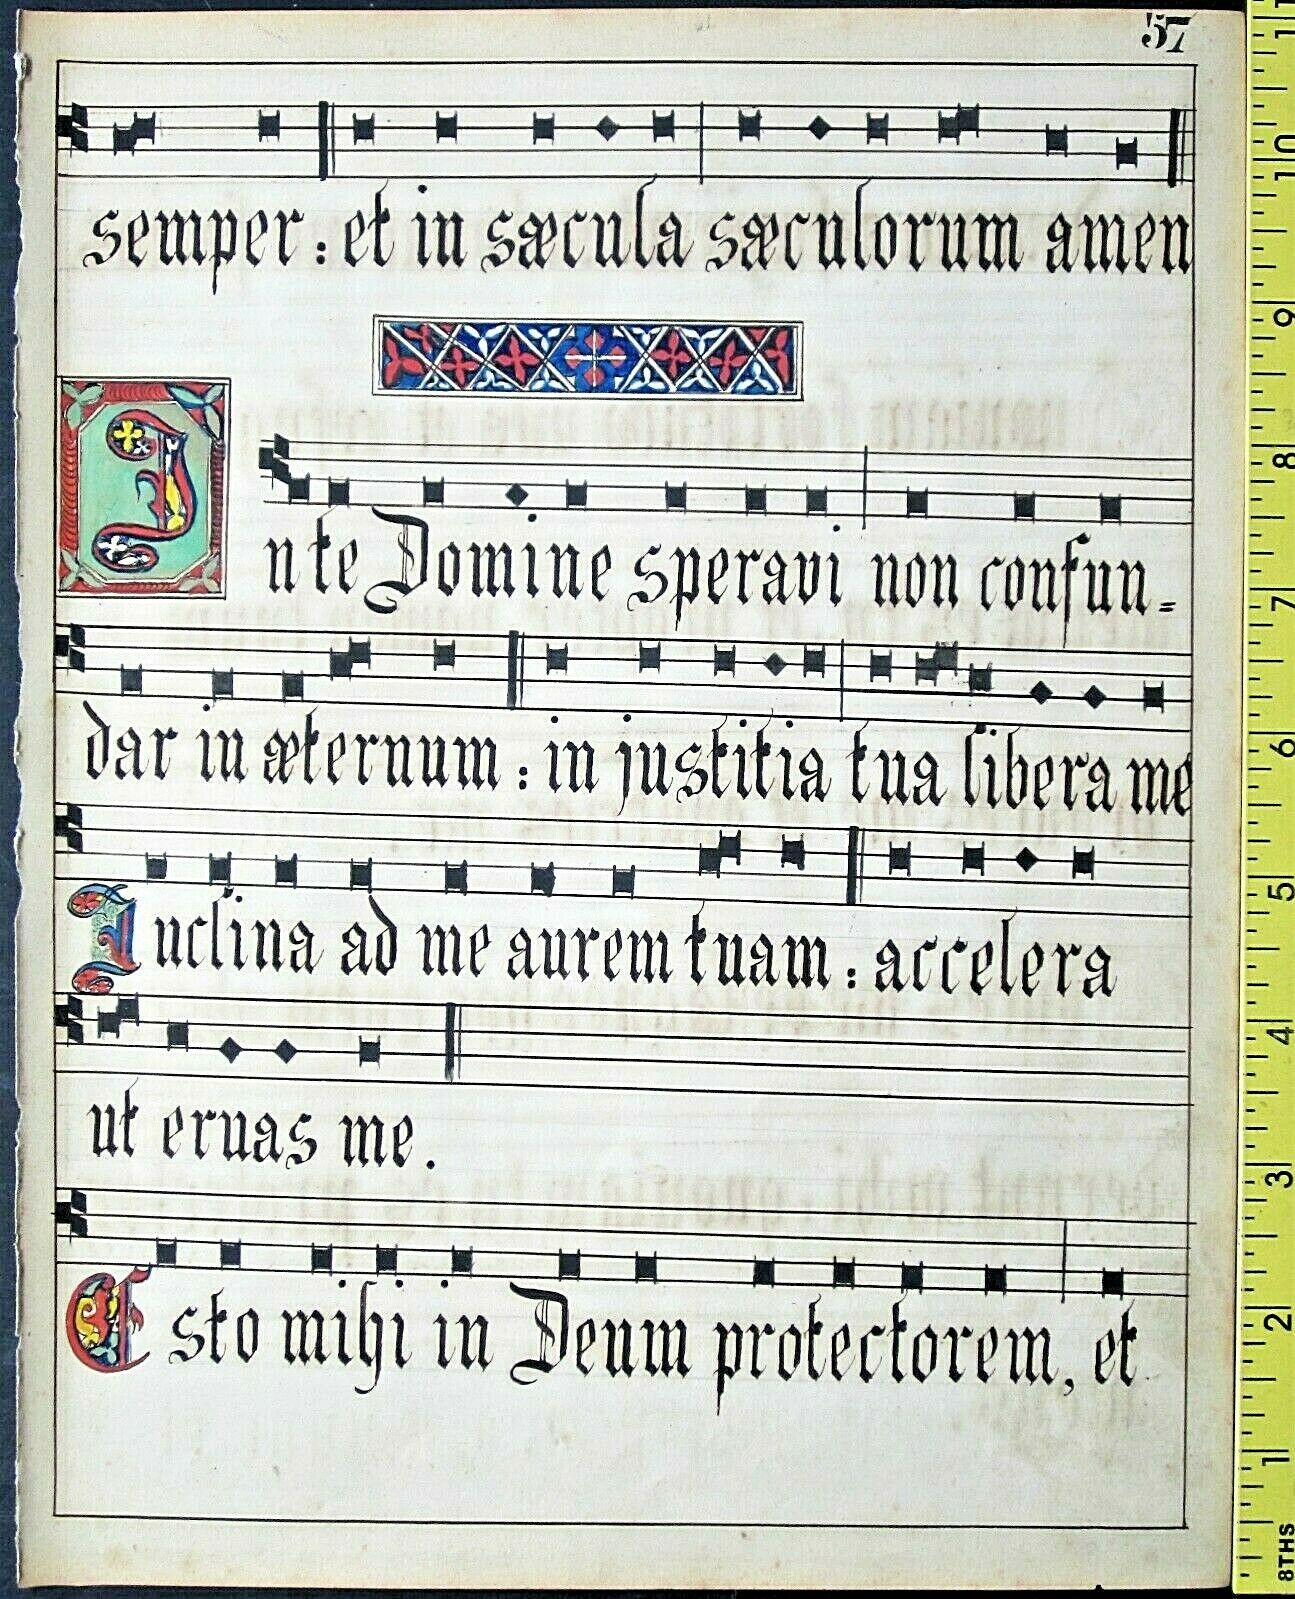 57
semper : et in sæcula sæculorum amen
In te Domine speravi non confun-
dar in æternum : in justitia tua libera me
Inclina ad me aurem tuam : accelera
ut eruas me.
Esto mihi in Deum protectorem, et
11
10
9
8
7
6
5
4
3
2
1
8THS